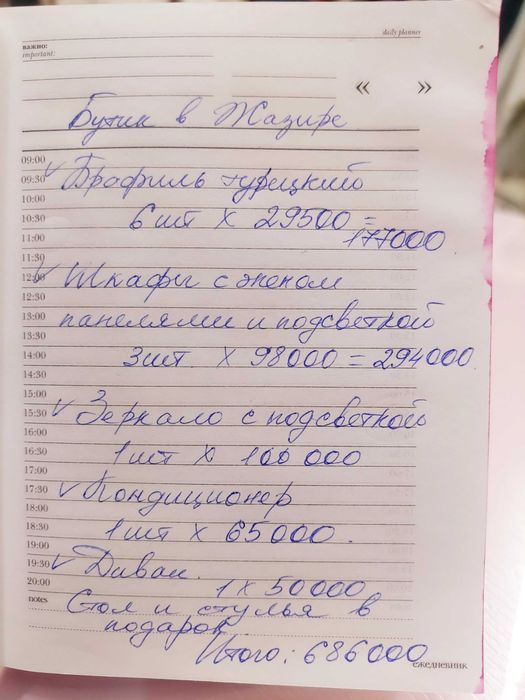 daily planner
важно:
important:
« »
Бутик в Жазире
09:00
09:30 ✓ Профиль турецкий
10:00
10:30 6 шт х 29500 =
11:00 177000
11:30
12:00 ✓ Шкафы с эконом
12:30
13:00 панелями и подсветкой
13:30
14:00 3 шт. х 98000 = 294000
14:30
15:00
15:30 ✓ Зеркало с подсветкой
16:00
16:30 1 шт х 100 000
17:00
17:30 ✓ Кондиционер
18:00
18:30 1 шт х 65000.
19:00
19:30 ✓ Диван.
20:00 1 х 50000
notes Стол и стулья в
подарок
Итого: 686000
ежедневник